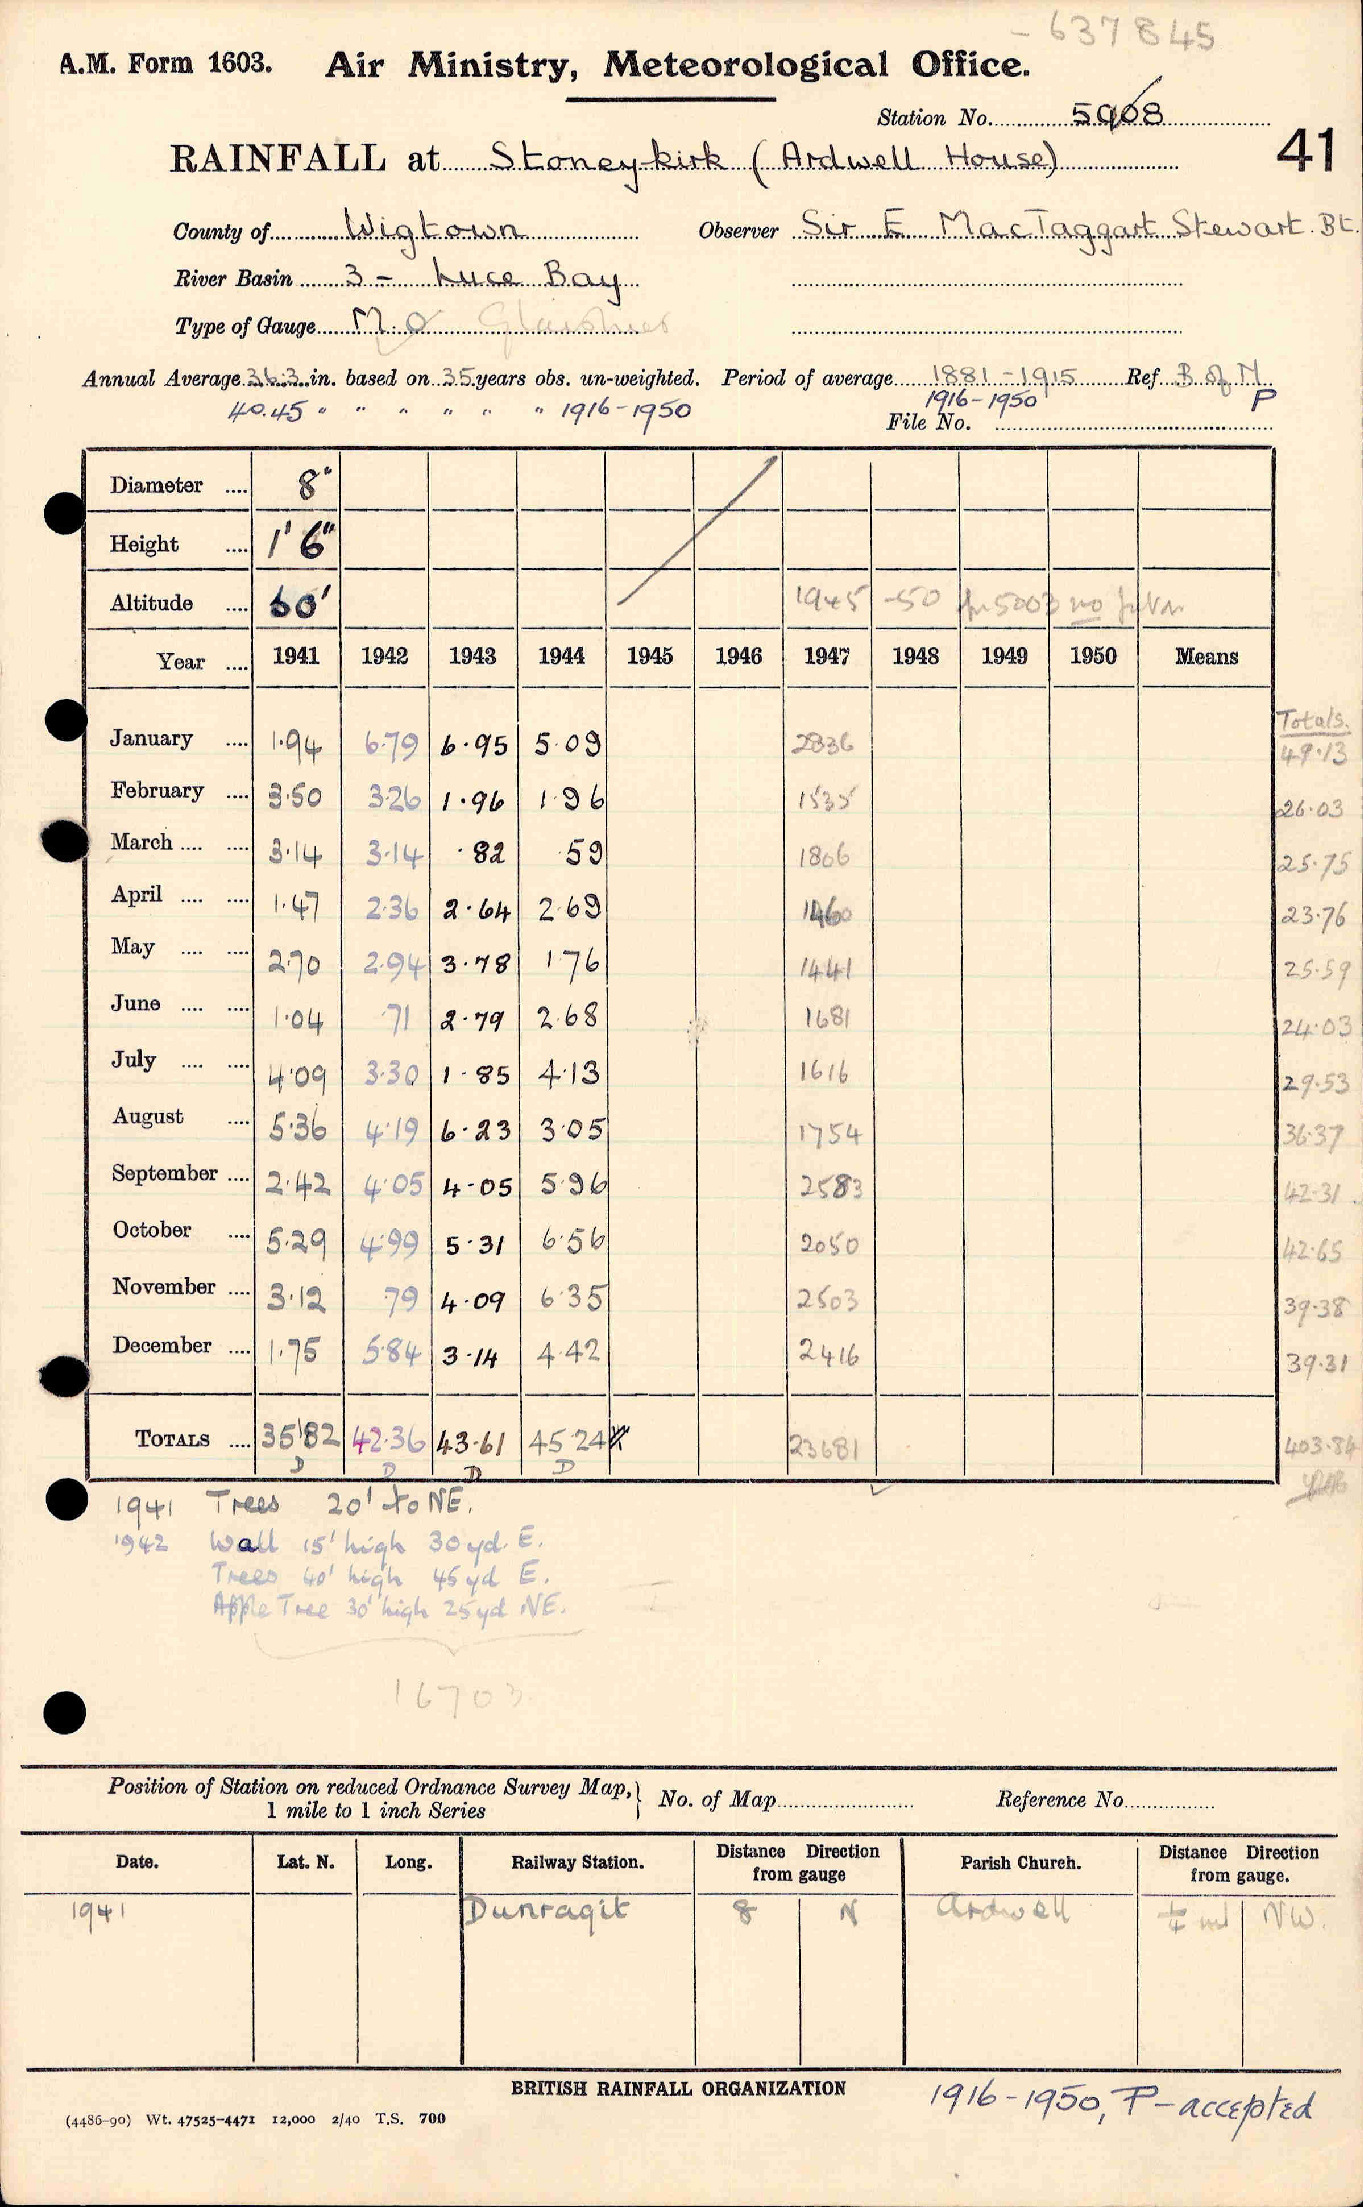 - 637845
A.M. Form 1603. Air Ministry, Meteorological Office.
Station No. 5908
RAINFALL at Stoneykirk (Ardwell House) 41
County of Wigtown Observer Sir E MacTaggart Stewart. Bt.
River Basin 3 - Luce Bay
Type of Gauge M.O Glaisher
Annual Average 36.3 in. based on 35 years obs. un-weighted. Period of average 1881-1915 Ref B of N
40.45 " " " " " " 1916-1950 1916-1950 P
File No.
Diameter .... 8"
Height .... 1' 6"
Altitude .... 60' 1945 -50 no
Year .... 1941 1942 1943 1944 1945 1946 1947 1948 1949 1950 Means
Totals.
January .... 1.94 6.79 6.95 5.09 2836 49.13
February .... 3.50 3.26 1.96 1.96 1535 26.03
March .... .... 3.14 3.14 .82 .59 1806 25.75
April .... .... 1.47 2.36 2.64 2.69 1460 23.76
May .... .... 2.70 2.94 3.78 1.76 1441 25.59
June .... .... 1.04 .71 2.79 2.68 1681 24.03
July .... .... 4.09 3.30 1.85 4.13 1616 29.53
August .... 5.36 4.19 6.23 3.05 1754 36.37
September .... 2.42 4.05 4.05 5.96 2583 42.31
October .... 5.29 4.99 5.31 6.56 2050 42.65
November .... 3.12 .79 4.09 6.35 2503 39.38
December .... 1.75 5.84 3.14 4.42 2416 39.31
TOTALS .... 35.82 42.36 43.61 45.24 23681 403.84
D D D D
1941 Trees 20' to NE.
1942 Wall 15' high 30 yd. E.
Trees 40' high 45 yd E.
Apple Tree 30' high 25 yd NE.
16703
Position of Station on reduced Ordnance Survey Map, 1 mile to 1 inch Series } No. of Map Reference No.
Date. Lat. N. Long. Railway Station. Distance Direction from gauge Parish Church. Distance Direction from gauge.
1941 Dunragit 8 N Ardwell ¼ ml NW.
BRITISH RAINFALL ORGANIZATION
1916-1950, P - accepted
(4486-90) Wt. 47525-4471 12,000 2/40 T.S. 700